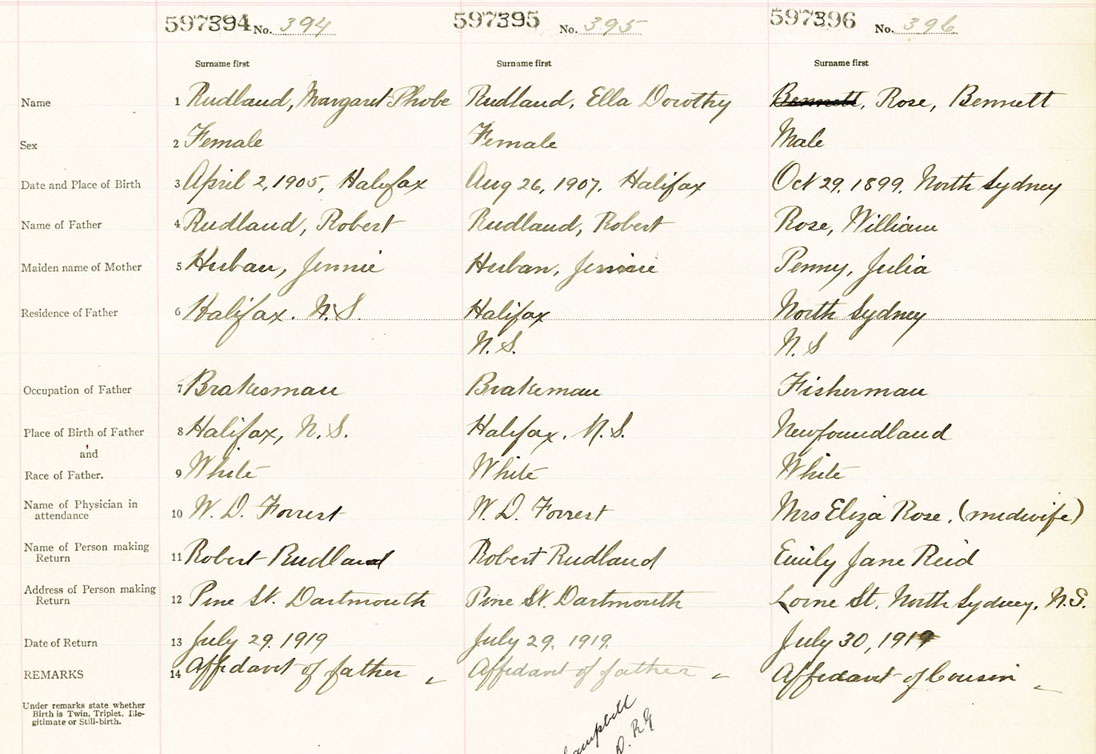 597394 No. 394 597395 No. 395 597396 No. 396
Surname first Surname first Surname first
Name 1 Rudland, Margaret Phobe Rudland, Ella Dorothy Bennett, Rose, Bennett
Sex 2 Female Female Male
Date and Place of Birth 3 April 2, 1905, Halifax Aug 26, 1907. Halifax Oct 29. 1899. North Sydney
Name of Father 4 Rudland, Robert Rudland, Robert Rose, William
Maiden name of Mother 5 Huban, Jennie Huban, Jennie Penny, Julia
Residence of Father 6 Halifax. N.S. Halifax North Sydney
N.S. N.S
Occupation of Father 7 Brakesman Brakeman Fisherman
Place of Birth of Father 8 Halifax, N.S. Halifax. N.S. Newfoundland
and
Race of Father. 9 White White White
Name of Physician in
attendance 10 W. D. Forrest W. D. Forrest Mrs Eliza Rose. (midwife)
Name of Person making
Return 11 Robert Rudland Robert Rudland Emily Jane Reid
Address of Person making
Return 12 Pine St. Dartmouth Pine St. Dartmouth Lorne St. North Sydney. N.S.
Date of Return 13 July 29. 1919 July 29. 1919. July 30, 1919
REMARKS 14 Affidavit of father Affidavit of father Affidavit of Cousin
Under remarks state whether
Birth is Twin, Triplet, Ille-
gitimate or Still-birth.
Campbell
D. R G